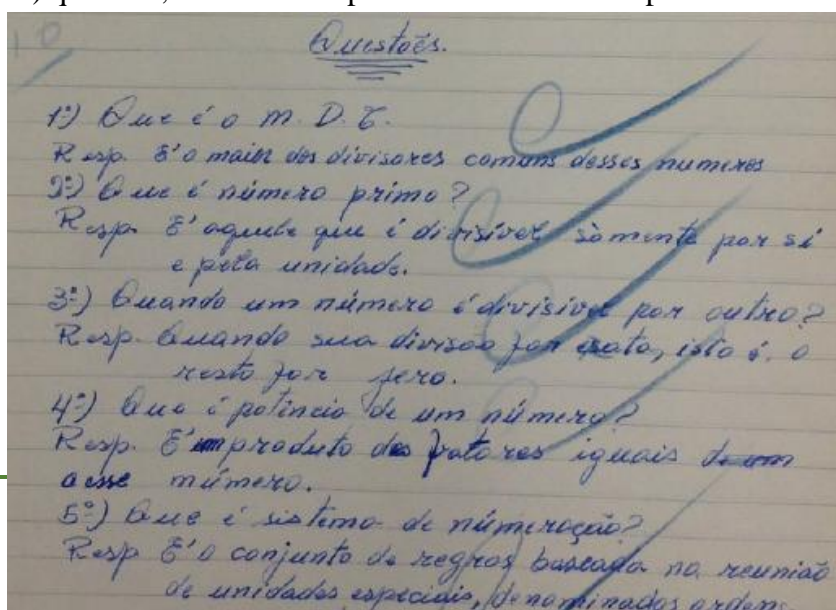 10
Questões.
1º) Que é o M. D. C.
Resp. É o maior dos divisores comuns desses numeros
2º) Que é número primo?
Resp. É aquele que é divisível sòmente por si
e pela unidade.
3º) Quando um número é divisível por outro?
Resp. Quando sua divisão for exata, isto é, o
resto for zero.
4º) Que é potência de um número?
Resp. É um produto de fatores iguais de um
a esse número.
5º) Que é sistema de númeração?
Resp É o conjunto de regras baseada na reunião
de unidades especiais, denominados ordens